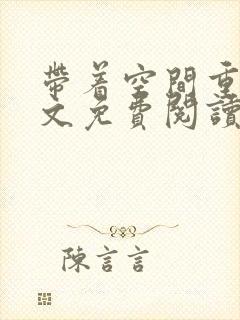 帶着空間重
文免費閱讀
陳言言